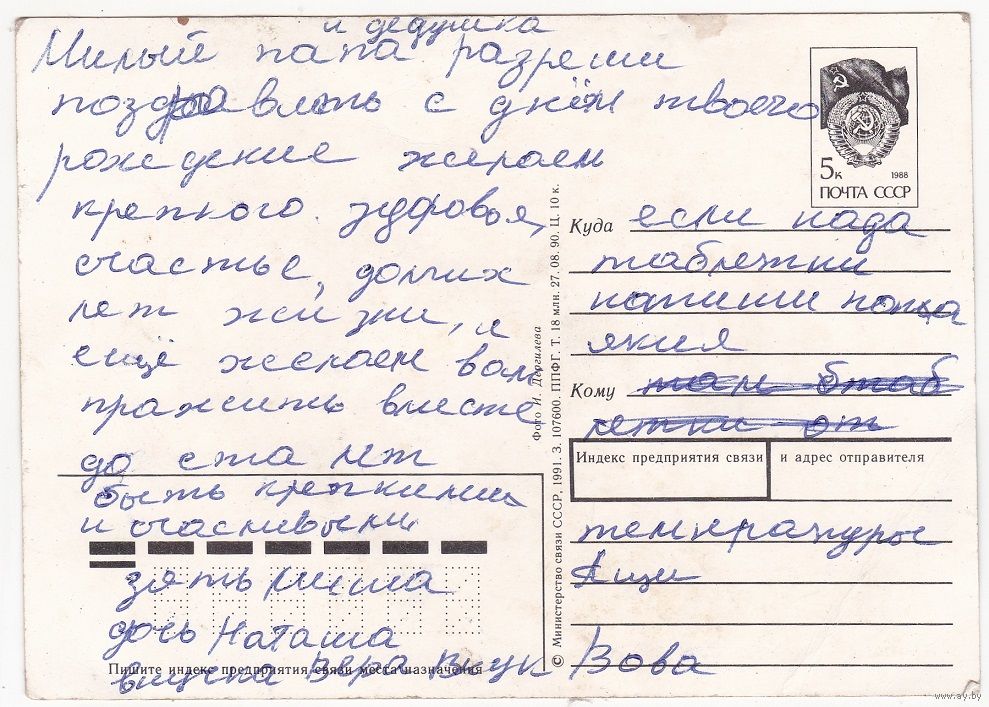 и дедушка
Милый папа разреши
поздравлять с днём твоего
рождение желаем
крепкого здоровья,
счастье, долгих
лет жизни, и
ещё желаем вам
пражить вместе
до ста лет
быть крепкими
и счасливыми
зять Миша
дочь Наташа
внучка Вера Внук Вова
5к 1988
ПОЧТА СССР
Куда если нада
таблетки
напиши папа
якия
Кому
Индекс предприятия связи и адрес отправителя
температуры
Ищи
Пишите индекс предприятия связи места назначения
© Министерство связи СССР, 1991. З. 107600. ППФГ. Т. 18 млн. 27. 08. 90. Ц. 10 к.
Фото И. Дергилева
www.ay.by